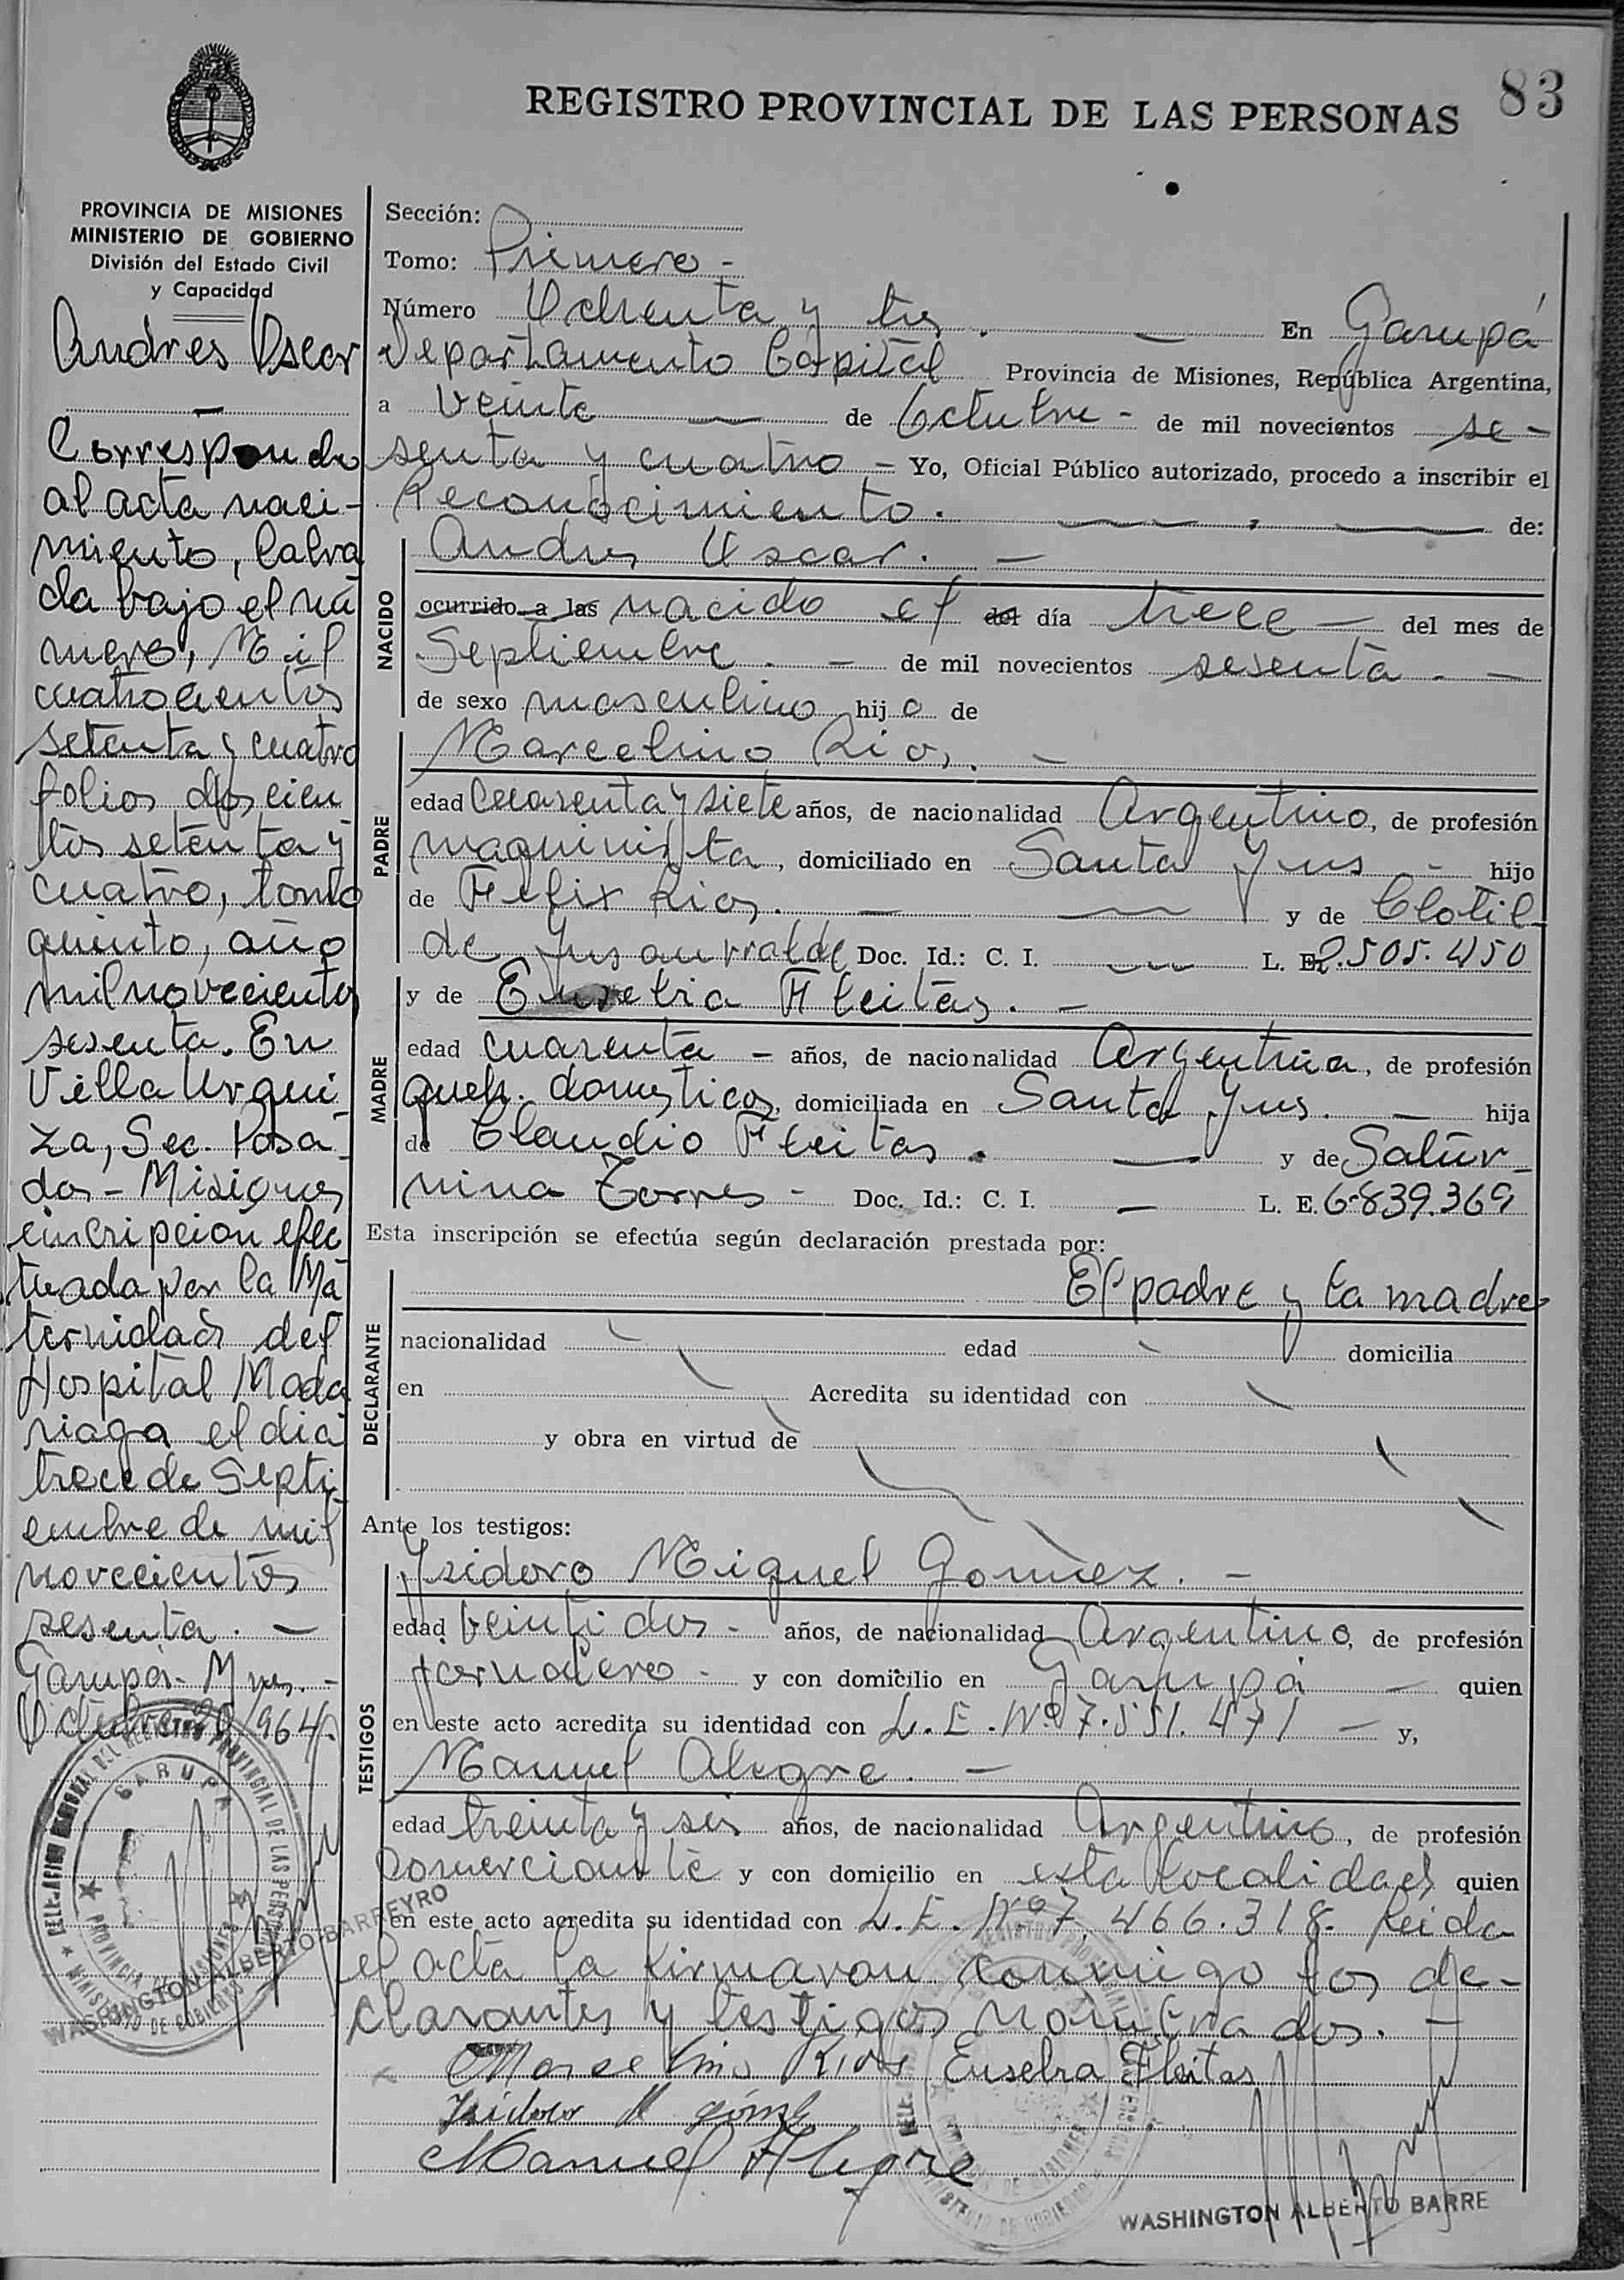 REGISTRO PROVINCIAL DE LAS PERSONAS 83
PROVINCIA DE MISIONES
MINISTERIO DE GOBIERNO
División del Estado Civil
y Capacidad
Andres Oscar
Corresponde
al acta naci-
miento, labra
da bajo el nú
mero, Mil
cuatrocientos
setenta y cuatro
folios doscien
tos setenta y
cuatro, tomo
quinto, año
mil novecientos
sesenta. En
Villa Urqui
za, Sec. Posa
das - Misiones
inscripcion efec
tuada por la Ma
ternidad del
Hospital Mada
riaga el dia
trece de Septi
embre de mil
novecientos
sesenta. —
Garupá - Mnes. -
Octubre 20/964.
Sección:
Tomo: Primero -
Número Ochenta y tres. — En Garupá
Departamento Capital Provincia de Misiones, República Argentina,
a veinte — de Octubre - de mil novecientos se-
senta y cuatro - Yo, Oficial Público autorizado, procedo a inscribir el
Reconocimiento. — de:
NACIDO
Andres Oscar. —
ocurrido a las nacido el del día trece — del mes de
Septiembre. — de mil novecientos sesenta. —
de sexo masculino hijo de
PADRE
Marcelino Rios. —
edad Cuarenta y siete años, de nacionalidad Argentino, de profesión
maquinista, domiciliado en Santa Ynes - hijo
de Felix Rios. — y de Clotil-
de Ynsaurralde Doc. Id.: C. I. — L. E. 2.505.450
MADRE
y de Eusebia Fleitas. —
edad cuarenta - años, de nacionalidad Argentina, de profesión
queh. domesticos, domiciliada en Santa Ynes. — hija
de Claudio Fleitas. — y de Satur-
nina Torres - Doc. Id.: C. I. — L. E. 6.839.369
Esta inscripción se efectúa según declaración prestada por:
DECLARANTE
El padre y la madre
nacionalidad edad domicilia
en Acredita su identidad con
y obra en virtud de
Ante los testigos:
TESTIGOS
Ysidoro Miguel Gomez. -
edad veinti dos - años, de nacionalidad Argentino, de profesión
jornalero - y con domicilio en Garupá — quien
en este acto acredita su identidad con L. E. Nº 7.551.471 — y,
Manuel Alegre. —
edad treinta y seis años, de nacionalidad Argentino, de profesión
comerciante y con domicilio en esta localidad quien
en este acto acredita su identidad con L. E. Nº 7.466.318. Leida
el acta la firmaron conmigo los de-
clarantes y testigos nombrados. —
Marcelino Rios Eusebia Fleitas
Isidoro M gómez
Manuel Alegre
GARUPA
PROVINCIA DE MISIONES
MINISTERIO DE GOBIERNO
WASHINGTON ALBERTO BARREYRO
WASHINGTON ALBERTO BARRE